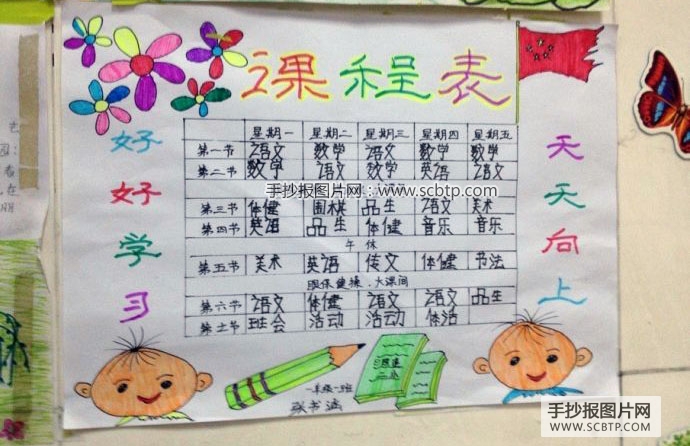 课程表
好好学习
天天向上
星期一 星期二 星期三 星期四 星期五
第一节 语文 数学 语文 数学 数学
第二节 数学 语文 数学 英语 语文
手抄报图片网：www.scbtp.com
第三节 体健 围棋 品生 语文 美术
第四节 英语 品生 体健 音乐 音乐
午休
第五节 美术 英语 传文 体健 书法
眼保健操、大课间
第六节 语文 体健 语文 语文 品生
第七节 班会 活动 活动 体活
一年级一班
张书涵
手抄报图片网
SCBTP.COM